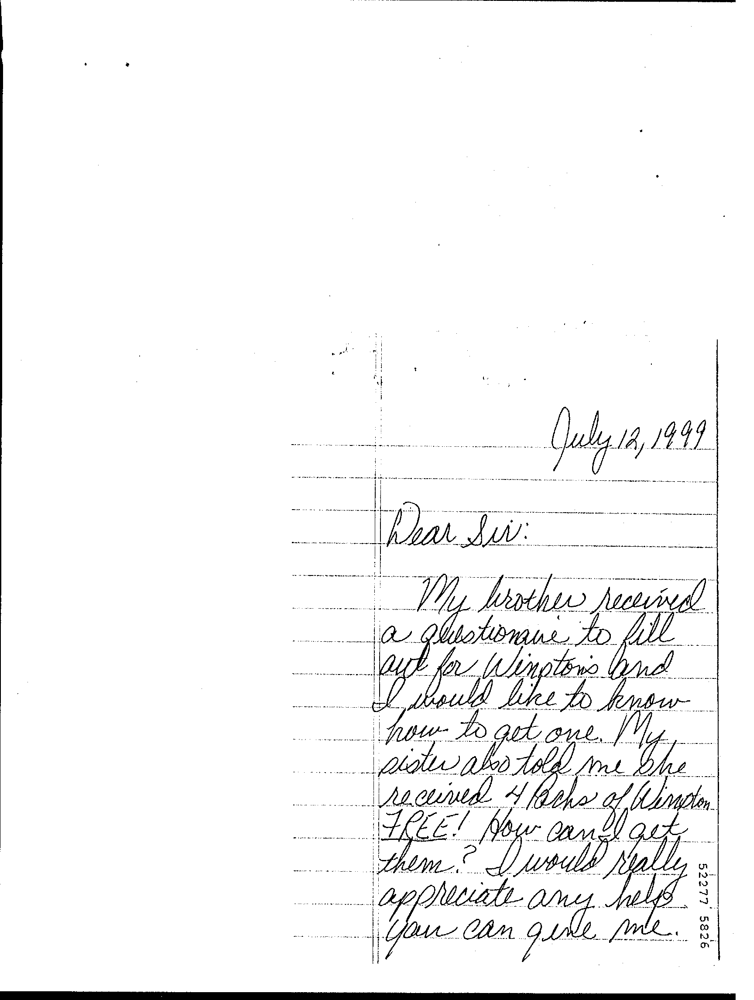 July 12, 1999
Dear Sir:
My brother received
a questionaire to fill
out for Winston's and
I would like to know
how to get one. My
sister also told me she
received 4 Packs of Winston
FREE! How can I get
them? I would really
appreciate any help
you can give me.
52277 5826